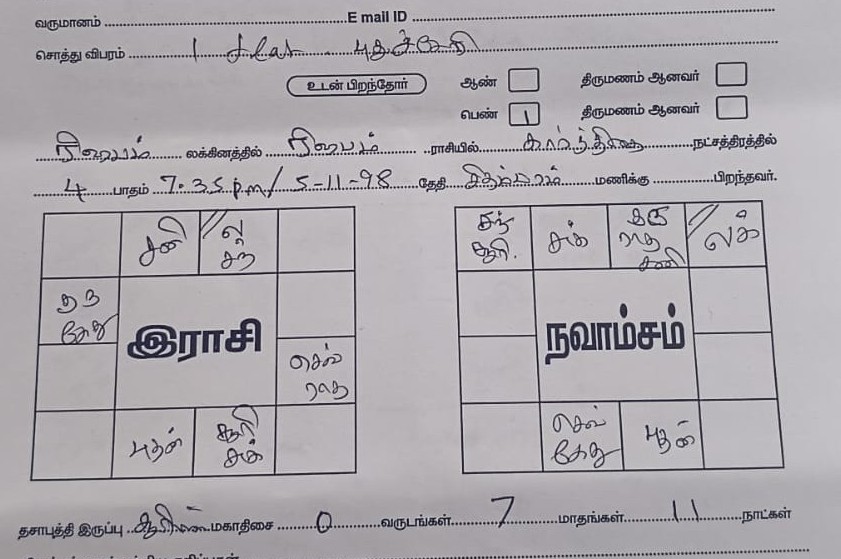 வருமானம் E mail ID
சொத்து விபரம் 1 flat புதுச்சேரி
உடன் பிறந்தோர் ஆண் திருமணம் ஆனவர்
பெண் 1 திருமணம் ஆனவர்
ரிஷபம் லக்கினத்தில் ரிஷபம் ராசியில் கார்த்திகை நட்சத்திரத்தில்
4 பாதம் 7.35 p.m/ 5-11-98 தேதி சிதம்பரம் மணிக்கு பிறந்தவர்.
சனி ல சந் சந் சூரி. சுக் குரு ராகு சனி லக்
குரு கேது இராசி செவ் ராகு நவாம்சம்
புதன் சூரி சுக் செவ் கேது புதன்
தசாபுத்தி இருப்பு சூரியன் மகாதிசை 0 வருடங்கள் 7 மாதங்கள் 11 நாட்கள்